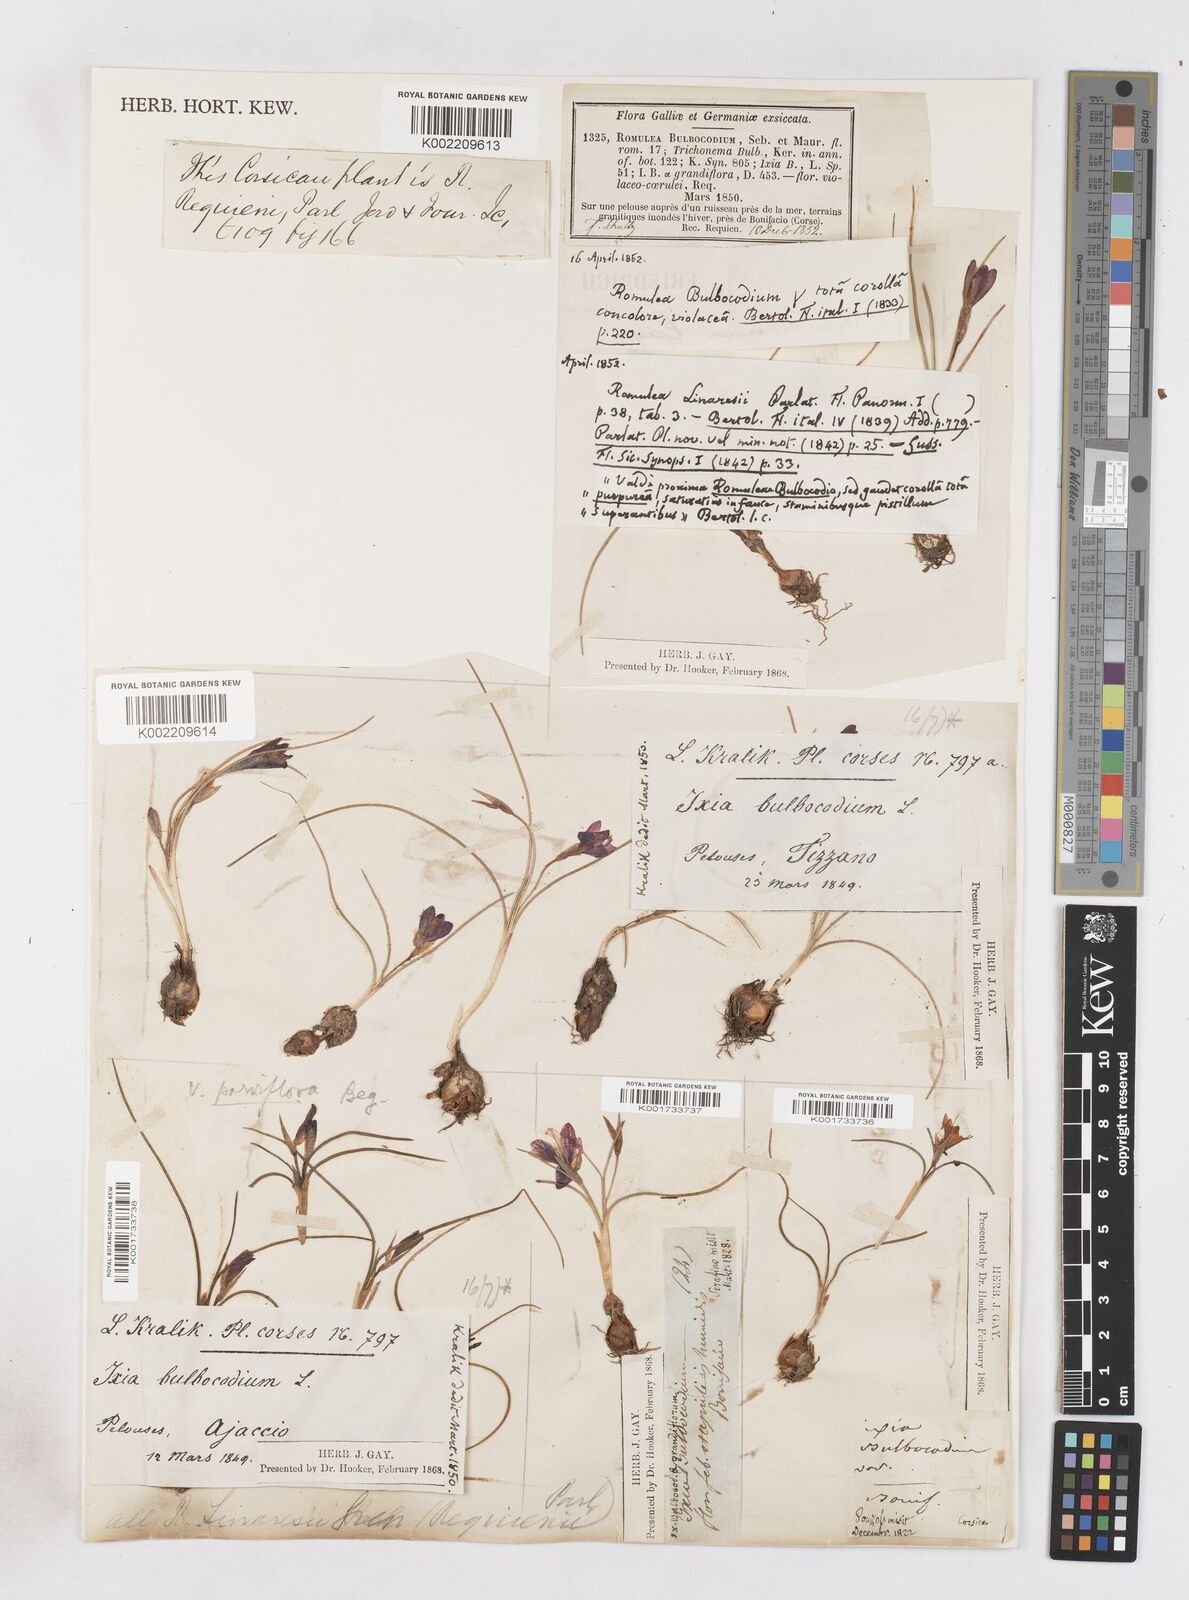 HERB. HORT. KEW.
ROYAL BOTANIC GARDENS KEW
K002209613
This Corsican plant is R.
Requieni, Parl
t109 by 166
Flora Galliæ et Germaniæ exsiccata.
1325, ROMULEA BULBOCODIUM, Seb. et Maur. fl.
rom. 17; Trichonema Bulb., Ker. in. ann.
of. bot. 122; K. Syn. 805; Ixia B., L. Sp.
51; I. B. α grandiflora, D. 453. — flor. vio-
laceo-cœrulei. Req.
Mars 1850.
Sur une pelouse auprès d'un ruisseau près de la mer, terrains
granitiques inondés l'hiver, près de Bonifacio (Corse).
Rec. Requien. 10 Decbr 1852.
16 April. 1852.
Romulea Bulbocodium γ totâ corollâ
concolore, violaceâ. Bertol. Fl. ital. I (1833)
p. 220.
April. 1852.
Romulea Linaresii Parlat. Fl. Panorm. I ( )
p. 38, tab. 3. — Bertol. Fl. ital. IV (1839) Add. p. 779. —
Parlat. Pl. nov. vel min. not. (1842) p. 25. — Guss.
Fl. Sic. Synops. I (1842) p. 33.
" Valdè proxima Romuleae Bulbocodio, sed gaudet corollâ totâ
" purpureâ, saturatius in fauce, staminibusque pistillum
" superantibus " Bertol. l. c.
HERB. J. GAY.
Presented by Dr. Hooker, February 1868.
ROYAL BOTANIC GARDENS KEW
K002209614
16/7)*
L. Kralik. Pl. corses N. 797 a.
Ixia bulbocodium L.
Pelouses, Tizzano
23 Mars 1849.
Kralik dedit Mart. 1850.
HERB. J. GAY.
Presented by Dr. Hooker, February 1868.
v. parviflora Beg.
ROYAL BOTANIC GARDENS KEW
K001733738
ROYAL BOTANIC GARDENS KEW
K001733737
ROYAL BOTANIC GARDENS KEW
K001733736
16/7)*
L. Kralik. Pl. corses N. 797
Ixia bulbocodium L.
Pelouses, Ajaccio
12 Mars 1849.
HERB. J. GAY.
Presented by Dr. Hooker, February 1868.
Kralik dedit Mart. 1850.
all R. Linaresii (Requienii
Parl)
HERB. J. GAY.
Presented by Dr. Hooker, February 1868.
grandiflorum
Ixia Bulbocodium
humidis
Bonifacio
Serafino misit
Mart. 1828.
HERB. J. GAY.
Presented by Dr. Hooker, February 1868.
ixia
Bulbocodium
var.
Bonif.
misit
Decembr. 1822
Corsica
Don Williams
M000827
inches
centimetres
Royal Botanic Gardens
Kew
0 1 2 3 4 5 6 7 8 9 10
cm
copyright reserved